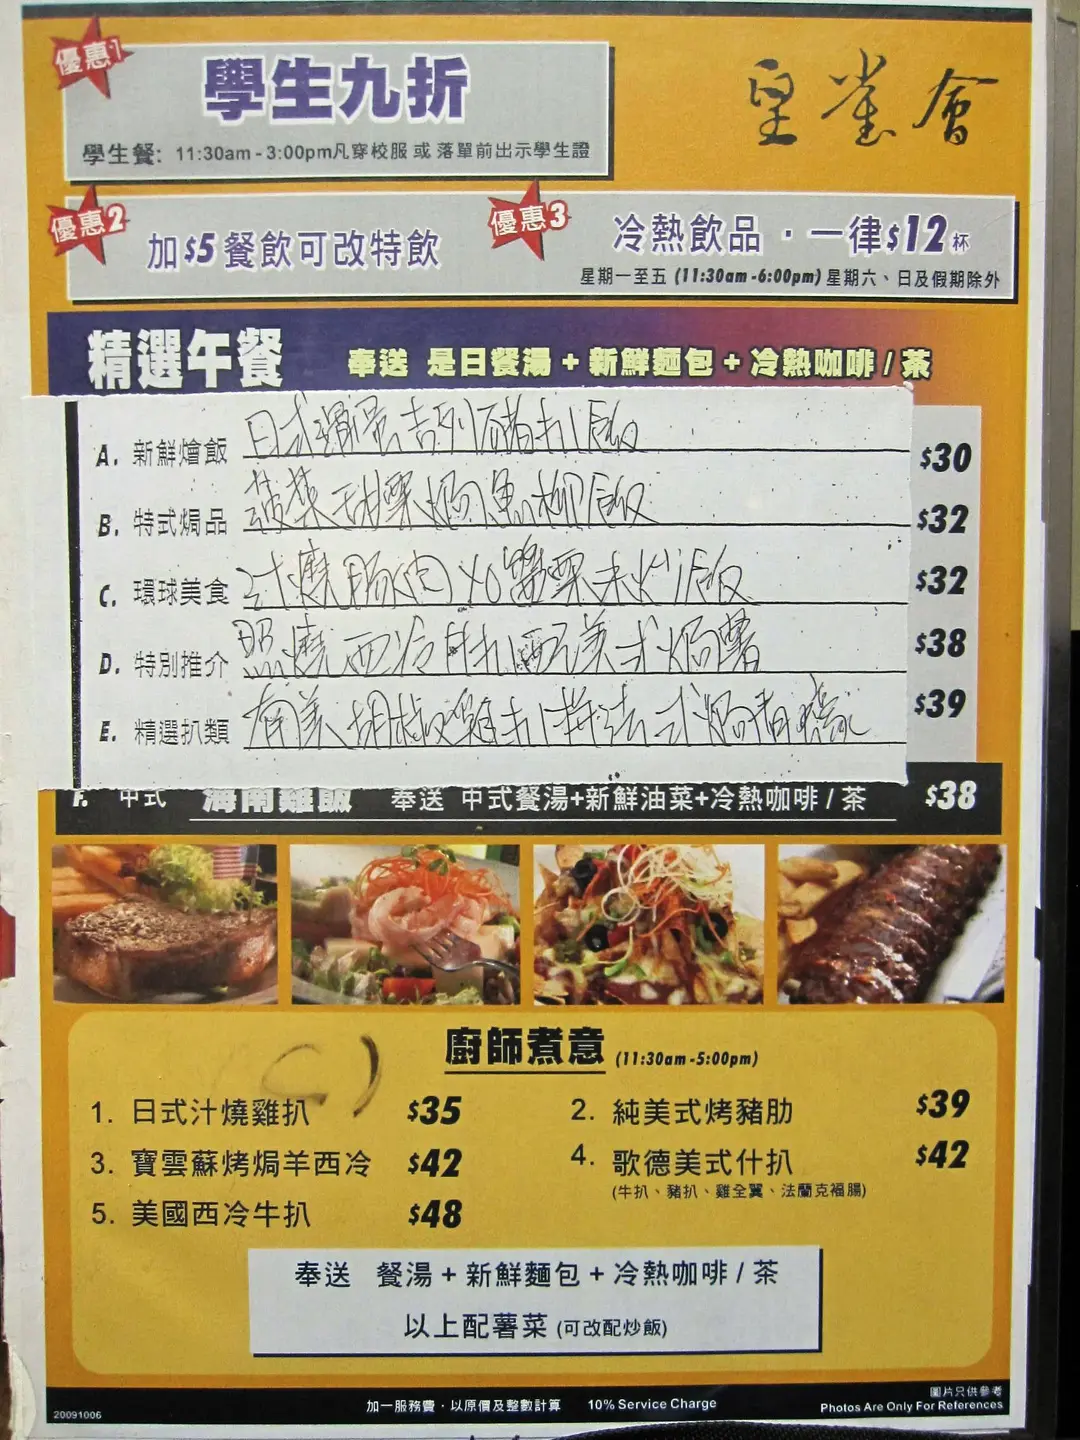 優惠1
學生九折
學生餐: 11:30am - 3:00pm凡穿校服 或 落單前出示學生證
皇雀會
優惠2
加 $5 餐飲可改特飲
優惠3
冷熱飲品 · 一律 $12 杯
星期一至五 (11:30am -6:00pm) 星期六、日及假期除外
精選午餐
奉送 是日餐湯 + 新鮮麵包 + 冷熱咖啡 / 茶
A. 新鮮燴飯 日式 吉列豬扒飯 $30
B. 特式焗品 菠菜甜粟焗魚柳飯 $32
C. 環球美食 汁燒腸肉XO醬粟米炒飯 $32
D. 特別推介 照燒西冷牛扒配美式焗薯 $38
E. 精選扒類 南美胡椒雞扒拼法式焗青 $39
F. 中式 海南雞飯 奉送 中式餐湯+新鮮油菜+冷熱咖啡 / 茶 $38
廚師煮意 (11:30am -5:00pm)
1. 日式汁燒雞扒 $35
2. 純美式烤豬肋 $39
3. 寶雲蘇烤焗羊西冷 $42
4. 歌德美式什扒 $42
(牛扒、豬扒、雞全翼、法蘭克福腸)
5. 美國西冷牛扒 $48
奉送 餐湯 + 新鮮麵包 + 冷熱咖啡 / 茶
以上配薯菜 (可改配炒飯)
20091006
加一服務費 · 以原價及整數計算 10% Service Charge
圖片只供參考
Photos Are Only For References